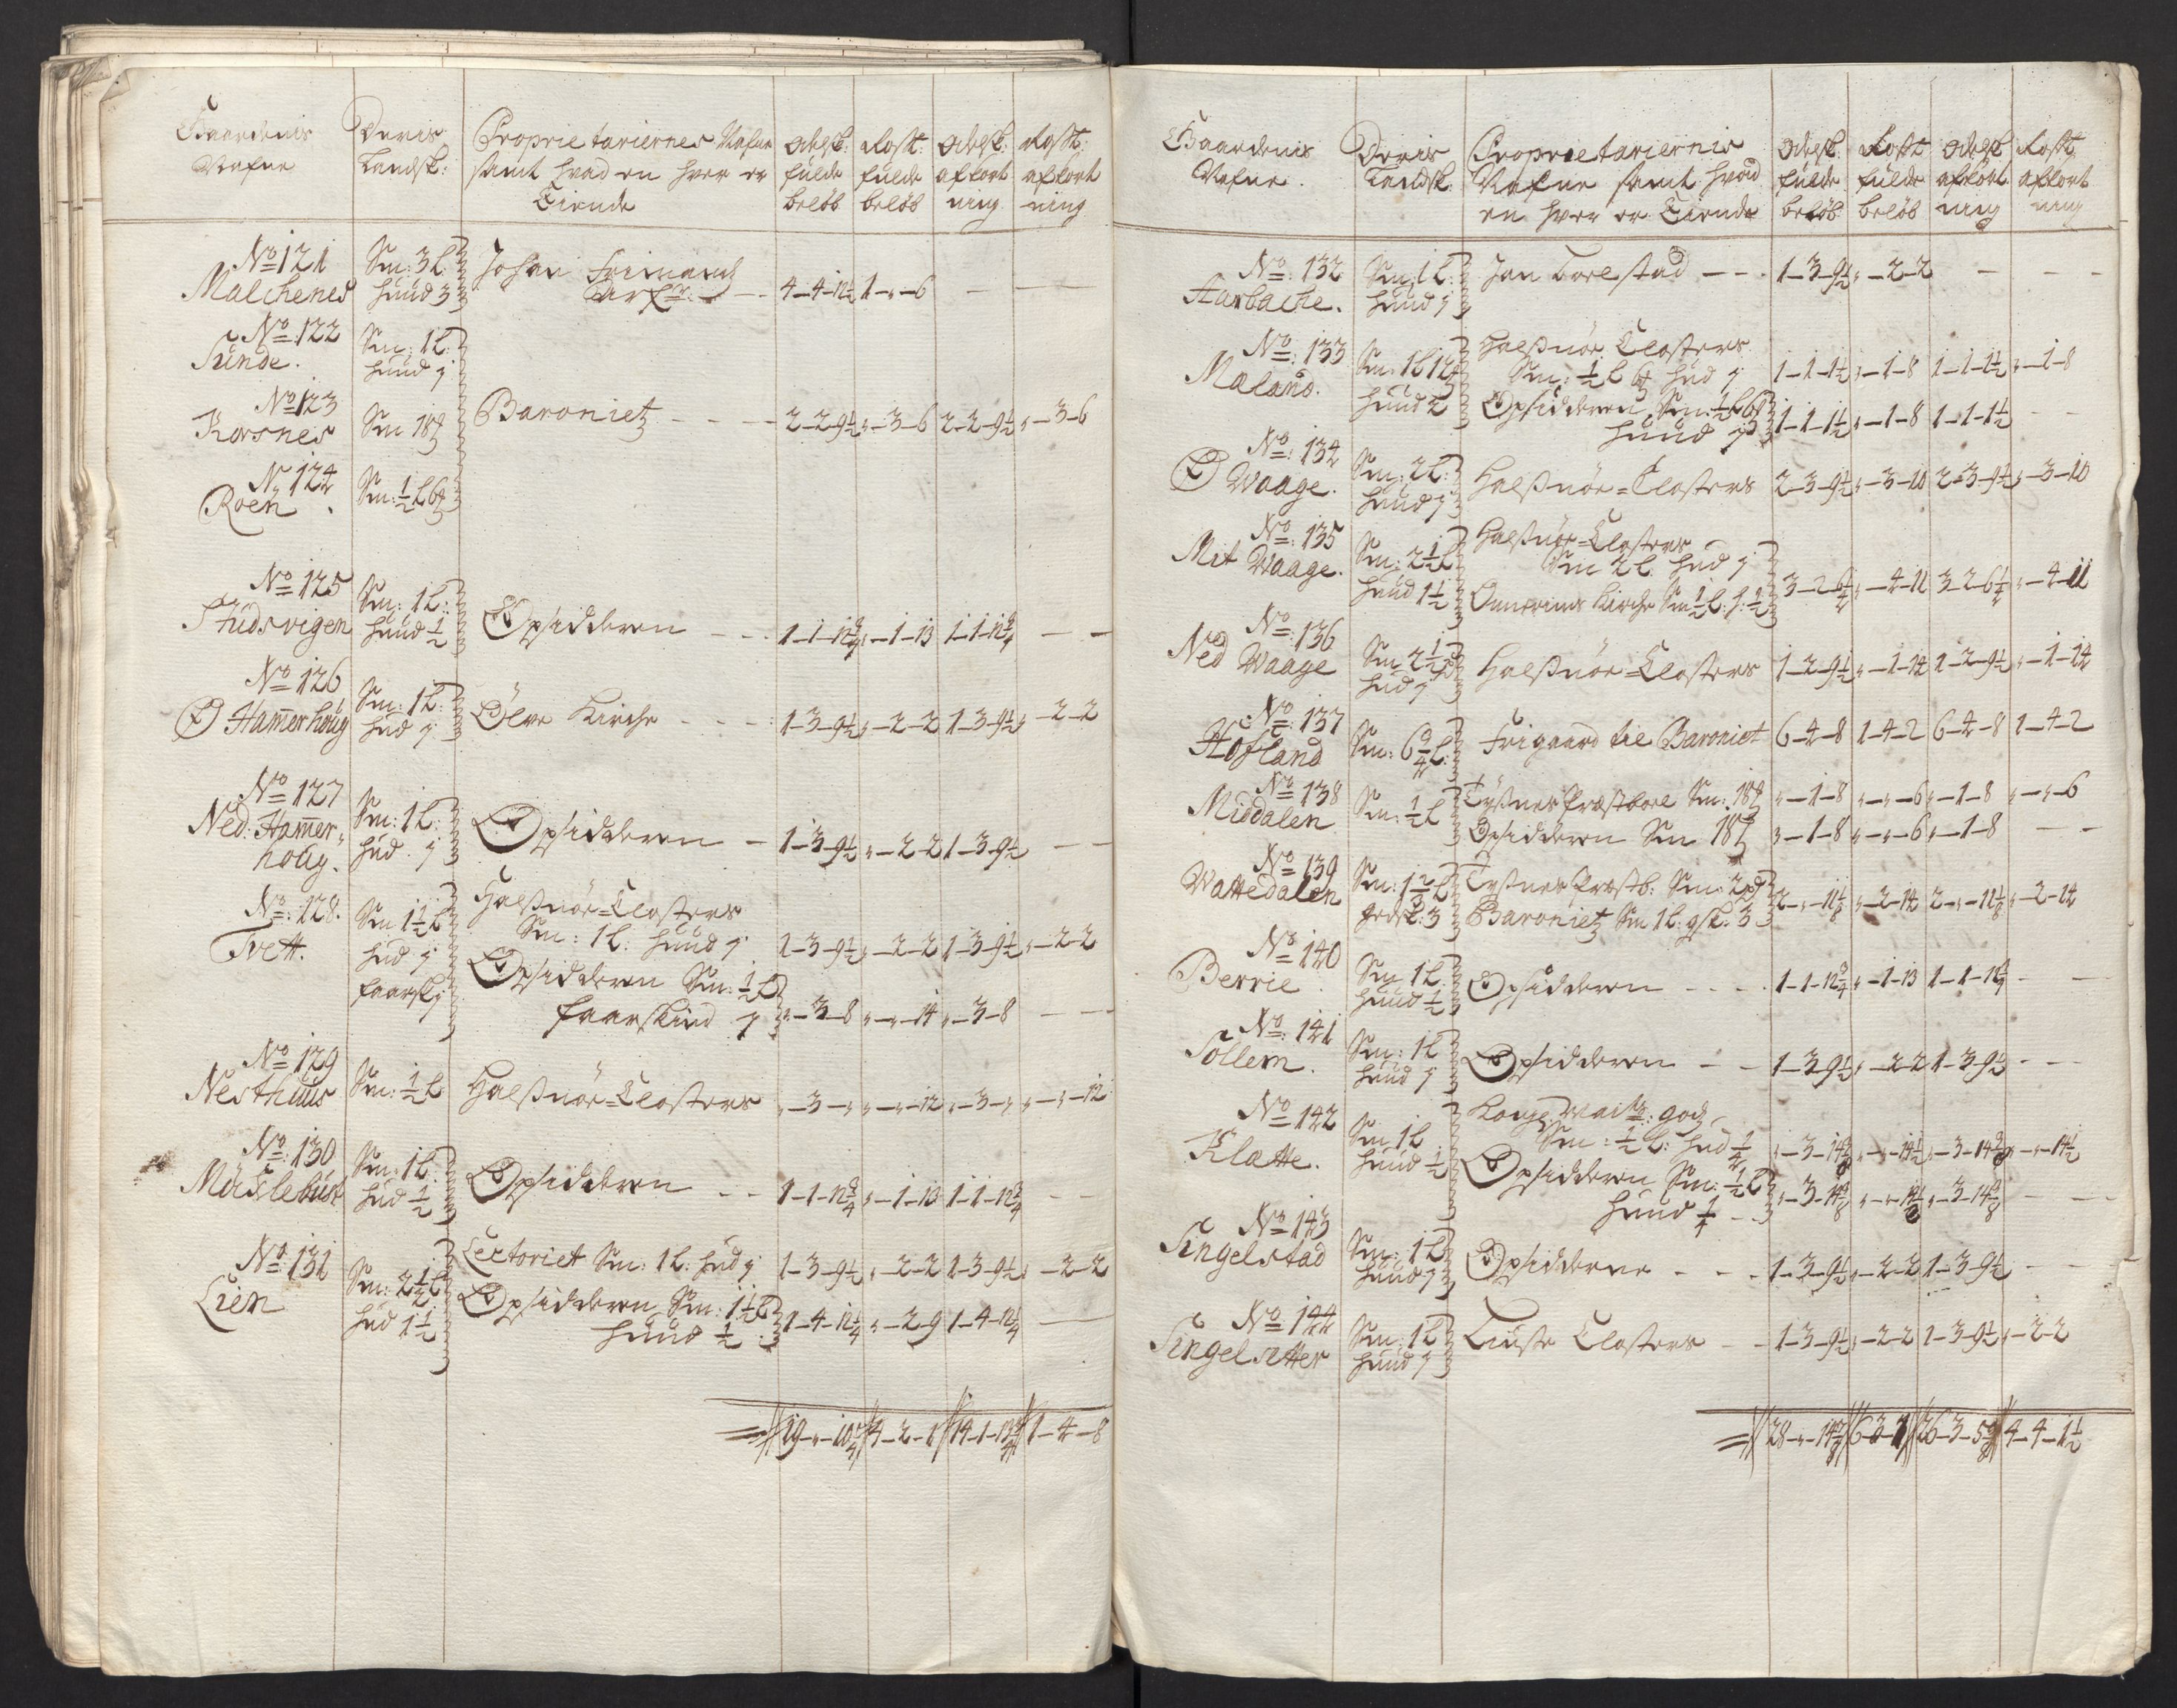 Gaardenis Nafne
Deris Landsk:
Proprietariernes Nafne samt hvad en hver er Eiende
Odelsk: fulde beløb
Rostt: fulde beløb
Odelsk: afkort ning
Rostt: afkort ning
No 121 Malchenes
Sm: 3 L: huud 3
Johan Frimand
4-4-12½ 1-„-6 — —
No: 122 Sunde.
Sm: 1 L: huud j
No 123 Korsnes
Sm 18
Baroniet
2-2-9½ „-3-6 2-2-9½ „-3-6
No 124 Roen.
Sm: ½ L 6
No 125 Studsvigen
Sm: 1 L: huud ½
Opsidderen
1-1-12¾ „-1-13 1-1-12¾ — —
No 126 Ø Hamerhoug
Sm: 1 L: hud j
Ølve Kirche
1-3-9½ „-2-2 1-3-9½ „-2-2
No 127 Ned: Hamer- houg.
Sm: 1 L: hud j
Opsidderen
1-3-9½ „-2-2 1-3-9½ — —
No: 128. Tvett.
Sm 1½ L hud j faarsk j
Halsnøe-Closters
Sm: 1 L: huud j
1-3-9½ „-2-2 1-3-9½ „-2-2
Opsidderen Sm: ½ L
faarskind j
„-3-8 „-„-14 „-3-8 — —
No 129 Nesthuus
Sm: ½ L
Halsnøe-Closters
„-3-„ „-„-12 „-3-„ „-„-12
No: 130
Sm: 1 L: hud ½
Opsidderen
1-1-12¾ „-1-13 1-1-12¾ — —
No: 131 Lien
Sm: 2½ L hud 1½
Lectoriet Sm: 1 L: hud j
1-3-9½ „-2-2 1-3-9½ „-2-2
Opsidderen Sm: 1½ L
huud ½
1-4-12¼ „-2-9 1-4-12¼ —
4-2-1 1-4-8
Gaardenis Nafne.
Deris Landsk:
Proprietariernis Nafne samt hvad en hver er Eiende
Odelsk: fulde beløb
Rostt fulde beløb
Odelsk afkort ning
Rostt afkort ning
No: 132 Aarbache.
Sm: 1 L: huud j
Jan Torestad
1-3-9½ „-2-2 — —
No: 133 Maland.
Sm: 1 L 12 huud 2
Halsnøe Closters
Sm: ½ L 6 hud j
1-1-1½ „-1-8 1-1-1½ „-1-8
Opsidderen Sm: ½ L 6
huud j
1-1-1½ „-1-8 1-1-1½ — —
No: 134 Ø Waage.
Sm: 2 L: huud j
Halsnøe-Closters
2-3-9½ „-3-10 2-3-9½ „-3-10
No: 135 Mit Waage.
Sm: 2½ L huud 1½
Halsnøe-Closters
Sm 2 L hud j
Onnerims Kirche Sm ½ L: h: ½
3-2-6¼ „-4-11 3-2-6¼ „-4-11
No: 136 Ned Waage
Sm 2½ hud j
Halsnøe-Closters
1-2-9½ „-1-14 1-2-9½ „-1-14
No: 137 Hofland
Sm: 6¾ L:
Frigaard til Baroniet
6-4-8 1-4-2 6-4-8 1-4-2
No: 138 Middalen
Sm: ½ L
Tysnes Præstbore Sm: 18
„-1-8 „-„-6 „-1-8 „-„-6
Opsidderen Sm 18
„-1-8 „-„-6 „-1-8 — —
No: 139 Wattedalen
Sm: 1⅔ L gedsk: 3
Tysnes Præstb: Sm: 2 pd
Baroniet Sm 1 L: gsk: 3
2-„-11⅛ „-2-14 2-„-11⅛ „-2-14
No: 140 Berrie.
Sm 1 L: huud ½
Opsidderen
1-1-12¾ „-1-13 1-1-12¾ — —
No: 141 Söllem.
Sm: 1 L huud j
Opsidderen
1-3-9½ „-2-2 1-3-9½ — —
No: 142 Klatte.
Sm 1 L huud ½
Sm: ½ L: hud ¼
„-3-14⅜ „-„-14½ „-3-14⅜ „-„-14½
Opsidderen Sm: ½ L
huud ¼
„-3-14⅜ „-„-14½ „-3-14⅜ — —
No: 143 Singelstad
Sm: 1 L huud j
Opsidderne
1-3-9½ „-2-2 1-3-9½ — —
No: 144 Singelsetter
Sm: 1 L huud j
Liuse Closters
1-3-9½ „-2-2 1-3-9½ „-2-2
4-4-1½